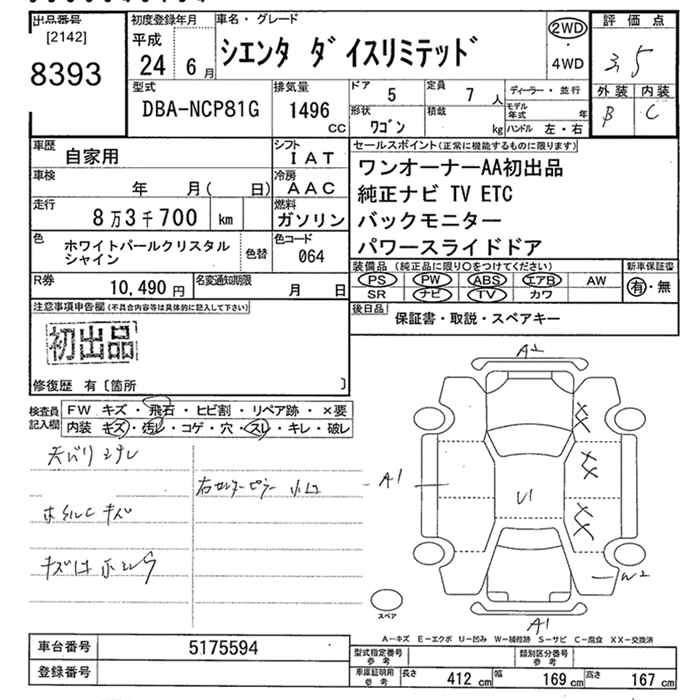 出品番号
[2142]
8393
初度登録年月
平成
24 6月
車名・グレード
シエンタ ダイスリミテッド
2WD
・
4WD
評価点
3.5
外装 内装
B C
型式
DBA-NCP81G
排気量
1496
CC
ドア 5
定員 7 人
形状 ワゴン
積載 kg
ディーラー・並行
モデル年式 年
ハンドル 左・右
車歴 自家用
シフト IAT
車検 年 月( 日)
冷房 AAC
走行 8万3千700 km
燃料 ガソリン
色 ホワイトパールクリスタル
シャイン
色替
色コード 064
R券 10,490円
名変通知期限 月 日
セールスポイント(正常に機能するものに限ります)
ワンオーナーAA初出品
純正ナビ TV ETC
バックモニター
パワースライドドア
装備品(純正品に限り○をつけてください)
PS PW ABS エアB AW
SR ナビ TV カワ
新車保証書
有・無
後日品 保証書・取説・スペアキー
注意事項申告欄(不具合内容等は具体的に記入して下さい)
初出品
修復歴 有〔箇所 〕
検査員記入欄
FW キズ・飛石・ヒビ割・リペア跡・×要
内装 キズ・汚レ・コゲ・穴・スレ・キレ・破レ
天バリ ヨゴレ
右センターピラー 小凹
A2
A1
U1
W2
A1
スペア
A―キズ E―エクボ U―凹み W―補修跡 S―サビ C―腐食 XX―交換済
車台番号 5175594
登録番号
型式指定番号
参考
類別区分番号
参考
車庫証明用
参考
長さ 412 cm 幅 169 cm 高さ 167 cm